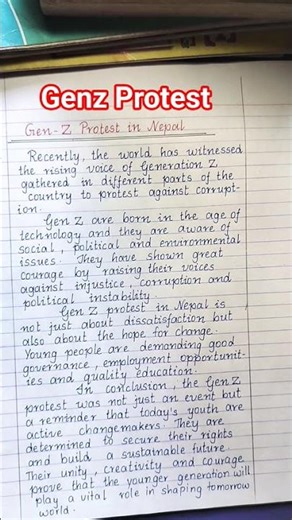 Genz Protest
Gen-Z Protest in Nepal
Recently, the world has witnessed
the rising voice of Generation Z
gathered in different parts of the
country to protest against corrupt-
ion.
Gen Z are born in the age of
technology and they are aware of
social, political and environmental
issues. They have shown great
courage by raising their voices
against injustice, corruption and
political instability.
Gen Z protest in Nepal is
not just about dissatisfaction but
also about the hope for change.
Young people are demanding good
governance, employment opportunit-
ies and quality education.
In conclusion, the Gen Z
protest was not just an event but
a reminder that today's youth are
active changemakers. They are
determined to secure their rights
and build a sustainable future.
Their unity, creativity and courage
prove that the younger generation will
play a vital role in shaping tomorrow
world.